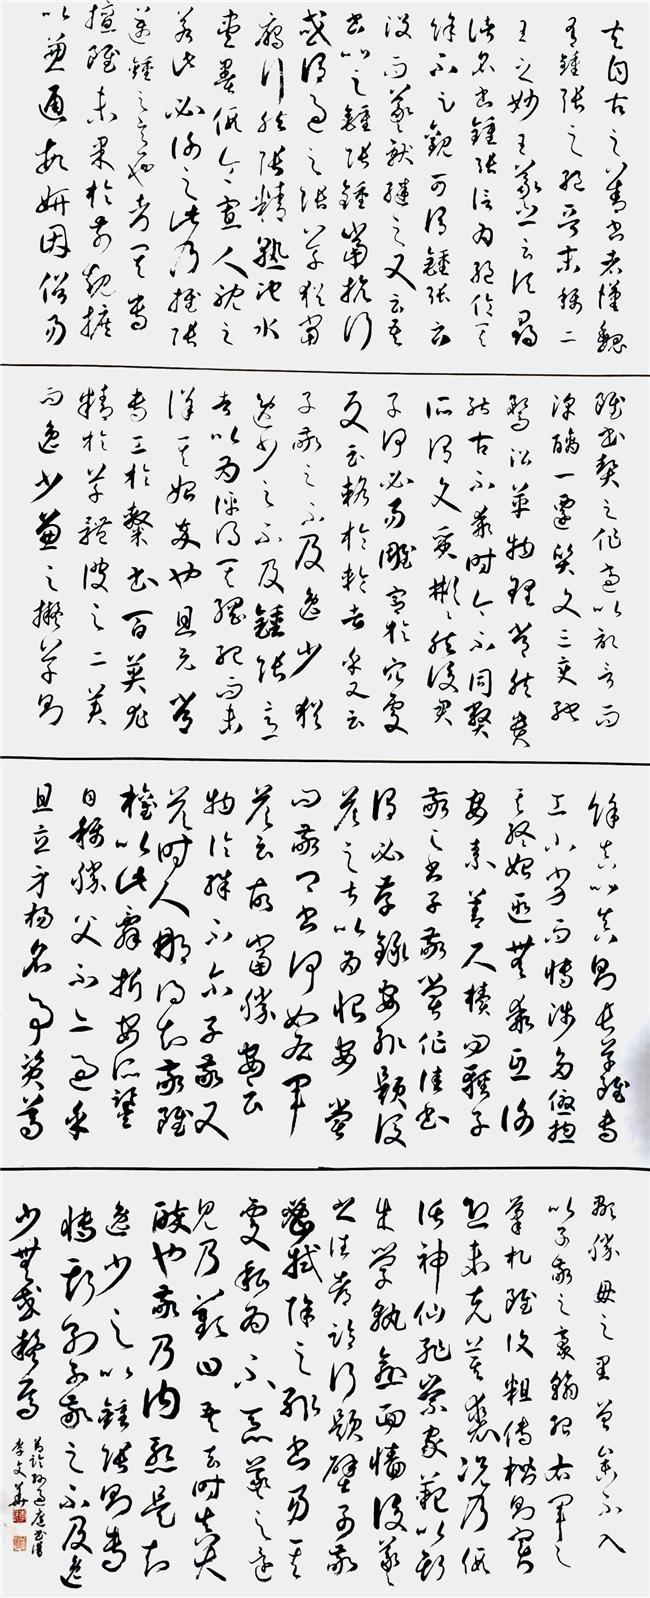 夫自古之善書者漢魏
有鍾張之絕晉末稱二
王之妙王羲之云頃尋
諸名書鍾張信為絕倫其
餘不足觀可謂鍾張云
沒而羲獻繼之又云吾
書比之鍾張鍾當抗行
或謂過之張草猶當
雁行然張精熟池水
盡墨假令寡人耽之
若此必謝之此乃推張
邁鍾之意也考其專
擅雖未果於前規摭
以兼通故妍因俗易
雖書契之作適以記言而
淳醨一遷質文三變馳
騖沿革物理常然貴
能古不乖時今不同弊
所謂文質彬彬然後君
子何必易雕宮於穴處
反玉輅於椎輪者乎又云
子敬之不及逸少猶
逸少之不及鍾張意
者以為評得其綱紀而未
詳其始卒也且元常
專工於隸書百英尤
精於草體彼之二美
而逸少兼之擬草則
餘真比真則長草雖專
工小劣而博涉多優總
其終始匪無乖互謝
安素善尺牘而輕子
敬之書子敬嘗作佳書
謂必存錄安輒題後
答之甚以為恨安嘗
問敬卿書何如右軍
答云故當勝安云
物論殊不爾子敬又
答時人那得知敬雖
權以此辭折安所鑒
自稱勝父不亦過乎
且立身揚名事資尊
顯勝母之里曾參不入
以子敬之豪翰紹右軍之
筆札雖復粗傳楷則實
恐未克箕裘況乃假
託神仙恥崇家範以斯
成學孰愈面牆後羲
之往都臨行題壁子敬
密拭除之輒書易其
處私為不惡羲之還
見乃歎曰吾去時真大
醉也敬乃內慚是知
逸少之比鍾張則專
博斯別子敬之不及逸
少無或疑焉
節臨孫過庭書譜
李文華